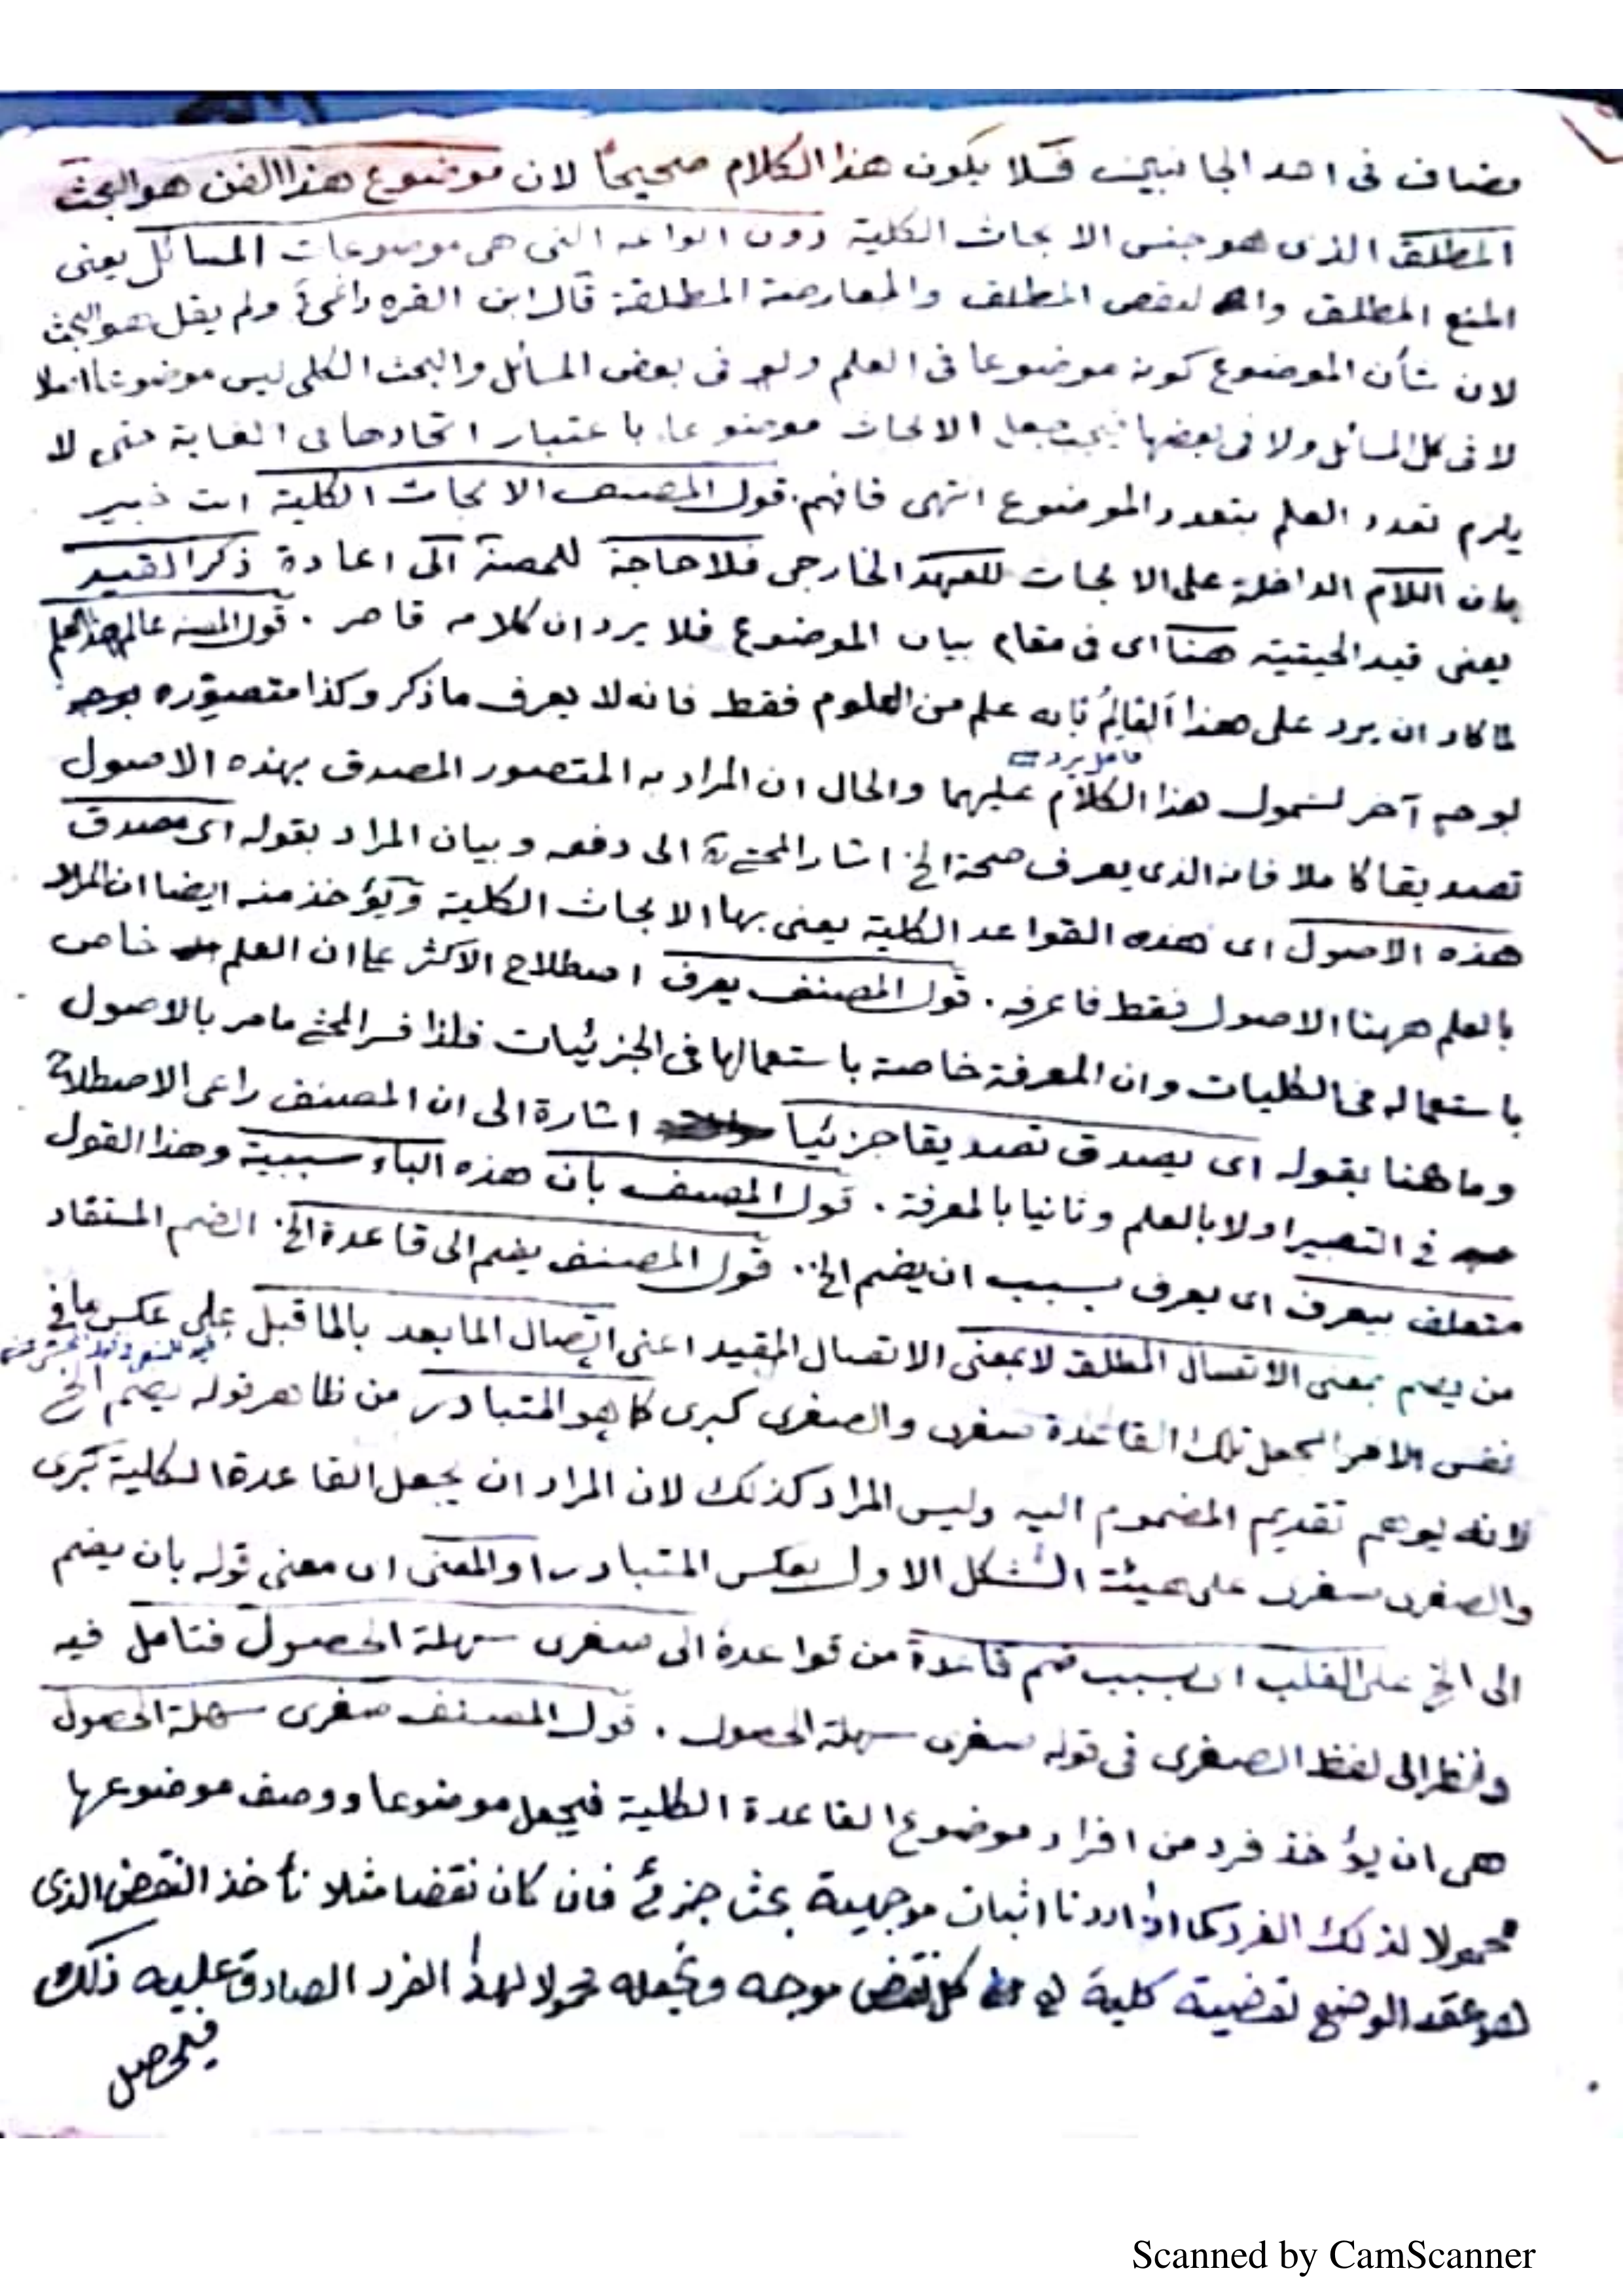 مضاف فى احد الجانبين فلا يكون هذا الكلام صحيحا لان موضوع هذا الفن هو البحث
المطلق الذى هو جنس الابحاث الكلية دون انواعه التى هى موضوعات المسائل يعنى
المنع المطلق والنقض المطلق والمعارضة المطلقة قال ابن القره داغى ولم يقل هو البحث
لان شأن الموضوع كونه موضوعا فى العلم ولو فى بعض المسائل والبحث الكلى ليس موضوعا اصلا
لا فى كل المسائل ولا فى بعضها فيجعل الابحاث موضوعا باعتبار اتحادها فى الغاية حتى لا
يلزم تعدد العلم بتعدد الموضوع انتهى فافهم . قول المصنف الابحاث الكلية انت خبير
بان اللام الداخلة على الابحاث للعهد الخارجى فلا حاجة للمصنف الى اعادة ذكر القيد
يعنى قيد الحيثية هنا اى فى مقام بيان الموضوع فلا يرد ان كلامه قاصر . قول المصنف عالم هذا العلم
لما كاد ان يرد على هذا العالم بانه علم من العلوم فقط فانه لا يعرف ما ذكر وكذا متصوره بوجه
فاعل يرد
لوجه آخر لشمول هذا الكلام عليهما والحال ان المراد به المتصور المصدق بهذه الاصول
تصديقا كاملا فانه الذى يعرف صحة الخ اشار المحشى الى دفعه وبيان المراد بقوله اى مصدق
هذه الاصول اى هذه القواعد الكلية يعنى بها الابحاث الكلية ويؤخذ منه ايضا ان المراد
بالعلم ههنا الاصول فقط فاعرفه . قول المصنف يعرف اصطلاح الاكثر على ان العلم خاص
باستعماله فى الكليات وان المعرفة خاصة باستعمالها فى الجزئيات فلذا فسر المحشى ما مر بالاصول
وما هنا بقوله اى يصدق تصديقا جزئيا اشارة الى ان المصنف راعى الاصطلاح
فى التعبير اولا بالعلم وثانيا بالمعرفة . قول المصنف بان هذه الباء سببية وهذا القول
متعلق بيعرف اى يعرف بسبب ان يضم الخ .. قول المصنف يضم الى قاعدة الخ الضم المستفاد
من يضم بمعنى الاتصال المطلق لا بمعنى الاتصال المقيد اعنى اتصال المابعد بالماقبل على عكس ما فى
نفس الامر الجعل تلك القاعدة صغرى والصغرى كبرى كما هو المتبادر من ظاهر قوله يضم الخ
لانه يوهم تقديم المضموم اليه وليس المراد كذلك لان المراد ان يجعل القاعدة الكلية كبرى
والصغرى صغرى على هيئة الشكل الاول بعكس المتبادر او المعنى اى معنى قوله بان يضم
الى الخ على القلب اى بسبب ضم قاعدة من قواعده الى صغرى سهلة الحصول فتامل فيه
وانظر الى لفظ الصغرى فى قوله صغرى سهلة الحصول . قول المصنف صغرى سهلة الحصول
هى ان يؤخذ فرد من افراد موضوع القاعدة الكلية فيجعل موضوعا ووصف موضوعها
محمولا لذلك الفرد كما اذا اردنا اثبات موجهية بحث جزئى فان كان نقضا مثلا نأخذ النقض الذى
هو عقد الوضع لقضية كلية كل نقض موجه ونجعله محمولا لهذا الفرد الصادق عليه ذلك
فيحصل
Scanned by CamScanner